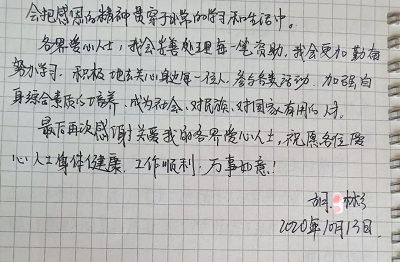 会把感恩的精神贯穿于求学的学习和生活中。
各界爱心人士,我会妥善处理每一笔资助,我会更加勤奋
努力学习,积极地去关心身边每一位人,参与各类活动,加强自
身综合素质的培养,成为社会、对民族、对国家有用的人才。
最后再次感谢关爱我的各界爱心人士,祝愿各位爱
心人士身体健康,工作顺利,万事如意!
2020年10月13日